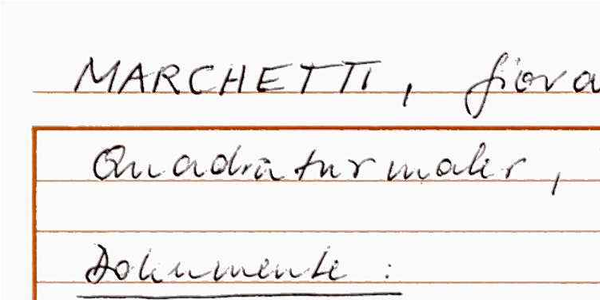 MARCHETTI, Giova
Quadraturmaler,
Dokumente: